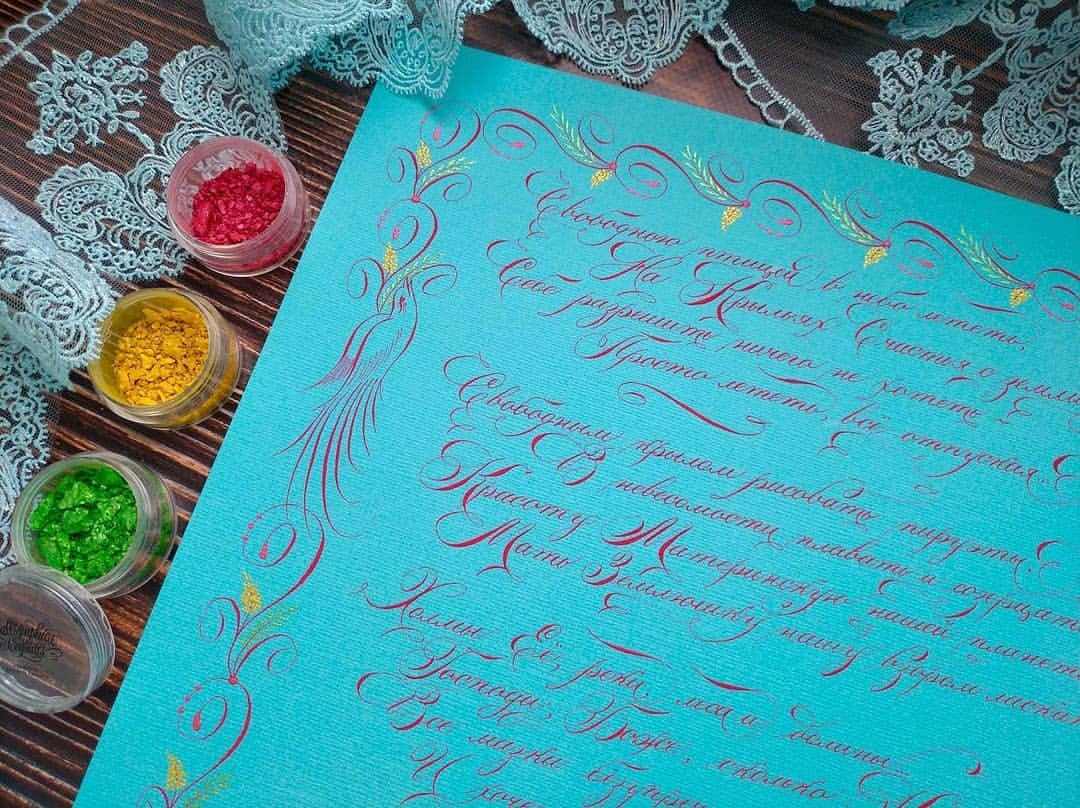 Свободною птицей в небо лететь,
На Крыльях Счастья о земли
Себе разрешить ничего не хотеть
Просто лететь, всё отпуская..
Свободным крылом рисовать пируэты.
В невесомости плавать и созерцать
Красоту Материнскую нашей планеты
Мать Землюшку нашу взором ласкать
Холмы Её, реки, леса и долины...
Господи, Боже, сколько
Все мазки безупре
И хоч